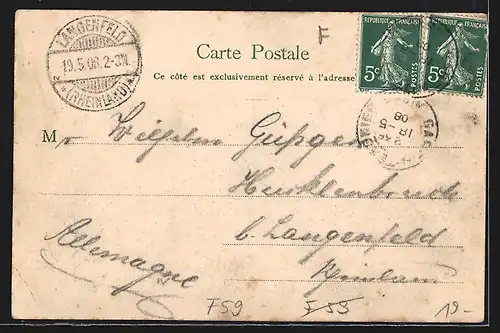 LANGENFELD
19.5.08.2-3N.
(RHEINLAND)
F
Carte Postale
Ce côté est exclusivement réservé à l'adresse
REPUBLIQUE FRANÇAISE
5c
POSTES
REPUBLIQUE FRANÇAISE
5c
POSTES
18
5
08
Mr Wilhelm Güßgen
Hucklenbruch
b. Langenfeld
Rheinland
Allemagne
F59
F 59
19-